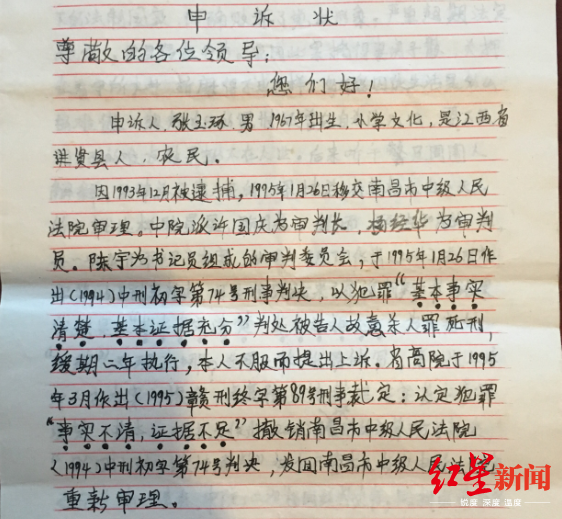 申诉状
尊敬的各位领导：
您们好！
申诉人，张玉环，男，1967年出生，小学文化，是江西省
进贤县人，农民。
因1993年12月被逮捕，1995年1月26日移交南昌市中级人民
法院审理。中院派许国庆为审判长，杨经华为审判
员。陈宇为书记员组成的审判委员会，于1995年1月26日作
出（1994）中刑初字第74号刑事判决，以犯罪“基本事实
清楚，基本证据充分”判处被告人故意杀人罪死刑，
缓期二年执行，本人不服而提出上诉。省高院于1995
年3月作出（1995）赣刑终字第89号刑事裁定：认定犯罪
“事实不清，证据不足”撤销南昌市中级人民法院
（1994）中刑初字第74号判决，发回南昌市中级人民法院
重新审理。
红星新闻
锐度 深度 温度